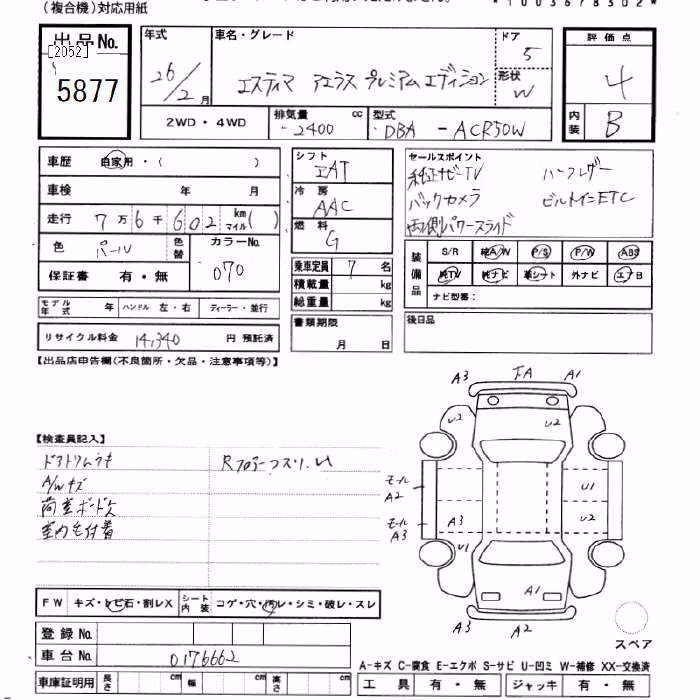 (複合機)対応用紙
*1003678302*
出品No.
[2052]
5877
年式
26/2月
車名・グレード
エスティマ アエラス プレミアムエディション
ドア
5
形状
W
評価点
4
内装
B
2WD・4WD
排気量
2400 cc
型式
DBA - ACR50W
車歴 自家用・( )
車検 年 月
走行 7万6千602 km マイル( )
色 パール
色替
カラーNo.
070
保証書 有・無
モデル年式 年 ハンドル 左・右 ディーラー・並行
リサイクル料金 14,340 円 預託済
シフト
IAT
冷房
AAC
燃料
G
乗車定員 7 名
積載量 kg
総重量 kg
書類期限
月 日
セールスポイント
純正ナビ・TV ハーフレザー
バックカメラ ビルトインETC
両側パワースライド
装備品
S/R 純A/W P/S P/W ABS
純TV 純ナビ 革シート 外ナビ エアB
ナビ型番:
後日品
【出品店申告欄(不良箇所・欠品・注意事項等)】
【検査員記入】
ドアトリムキズ
A/Wキズ
荷室ボード欠
室内毛付着
FW キズ・トビ石・割レX
シート内装 コゲ・穴・汚レ・シミ・破レ・スレ
登録No.
車台No. 0176662
車庫証明用 長さ cm 幅 cm 高さ cm
A3 下A A1
U2 U2
モール A2
U1
モール A3
A3 U2
U1
A1
A3 A2
スペア
A-キズ C-腐食 E-エクボ S-サビ U-凹ミ W-補修 XX-交換済
工具 有・無 ジャッキ 有・無